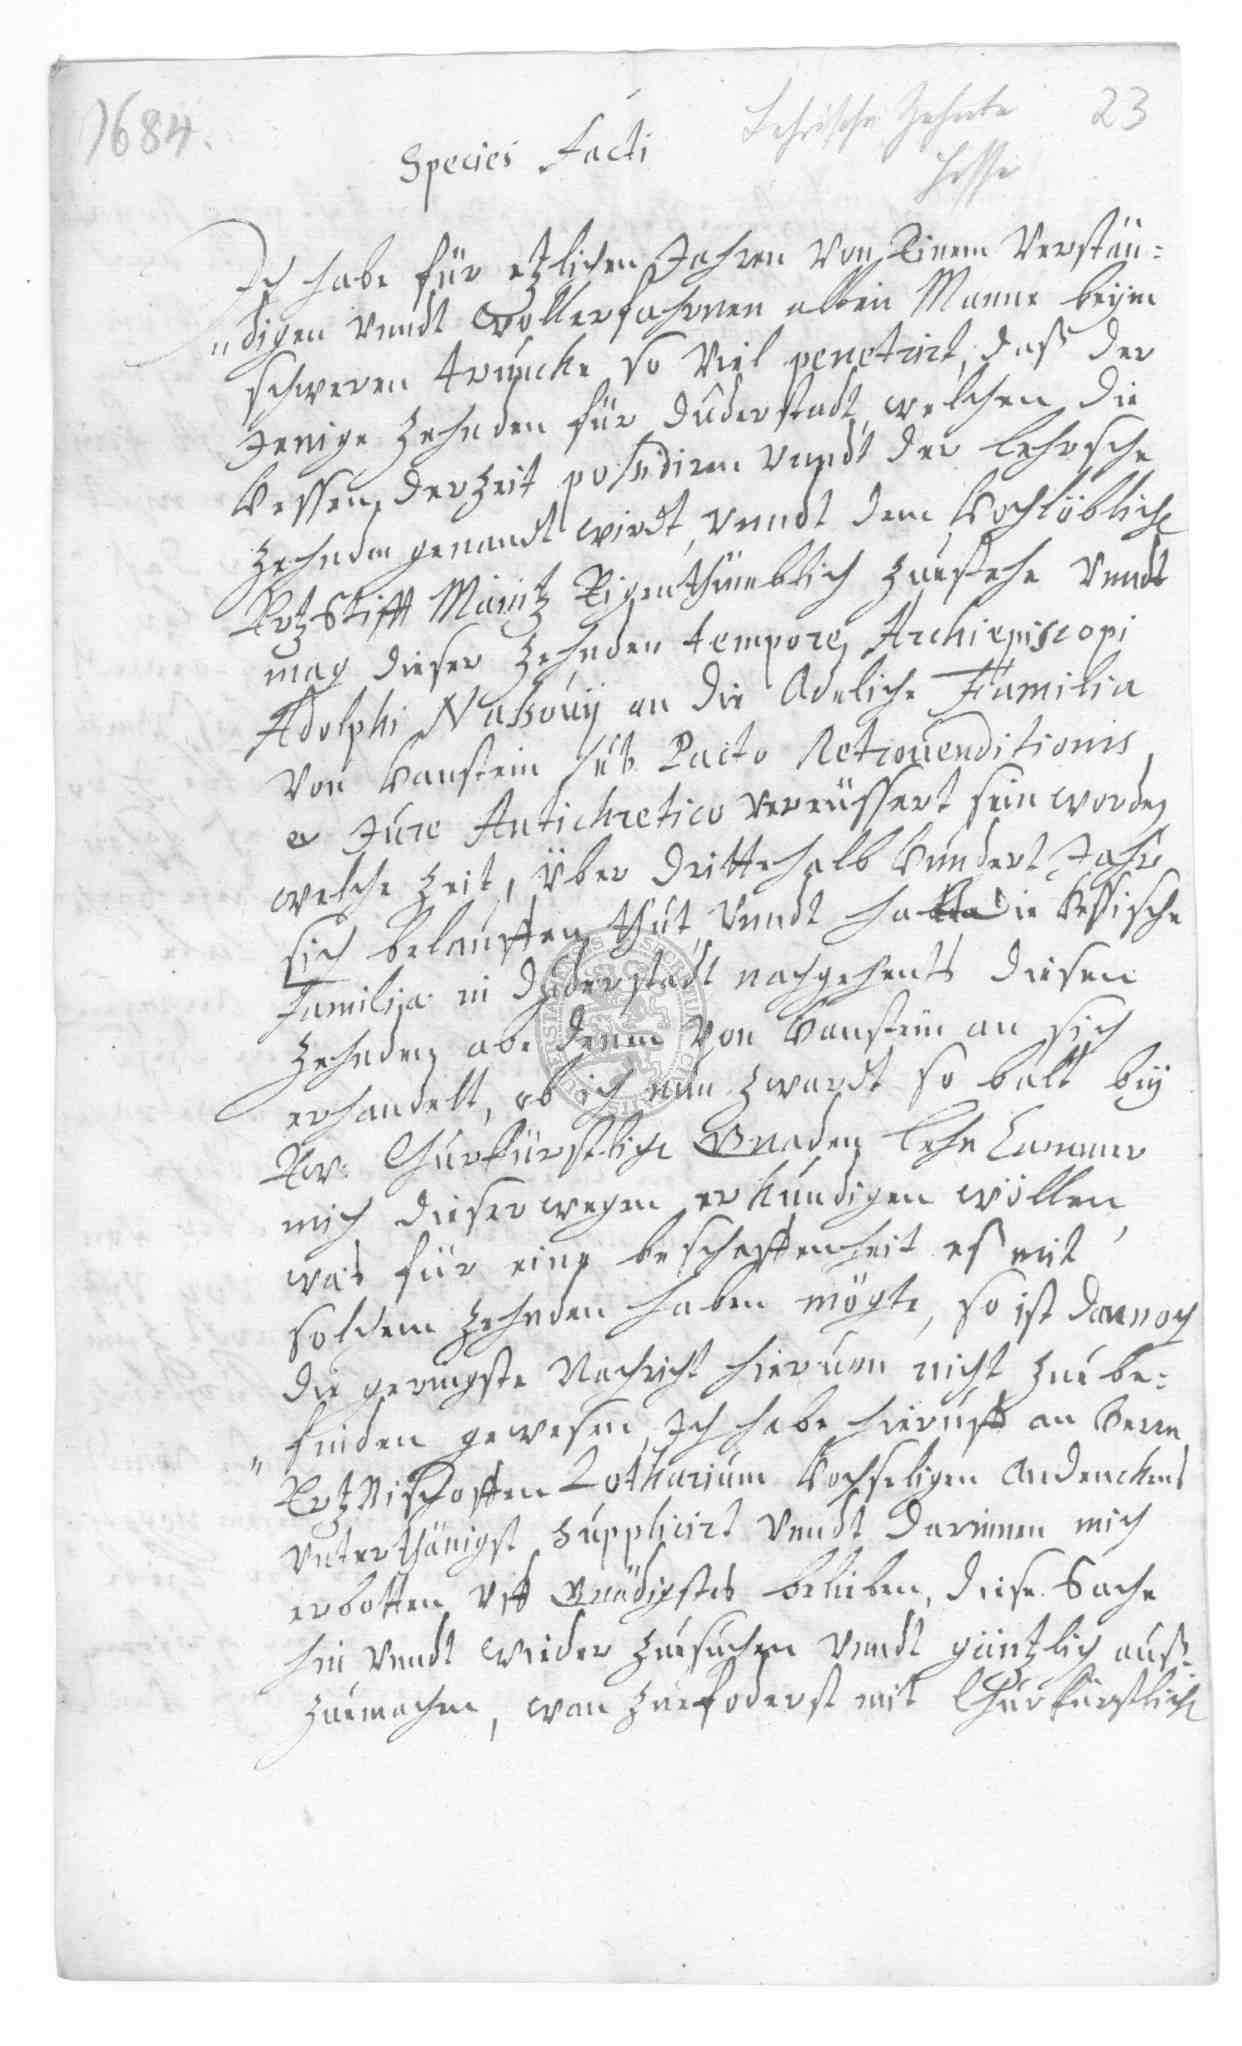 1684.
Lehrische Zehnte
23
Hesse
Species Facti
Ich habe für etzlichen Jahren von Einem Verstän=
"digen vundt wollerfahrnen alten Manne beÿm
schweren truncke so viel penetrirt, daß der
Jenige Zehnden für Duderstadt, welchen die
Hessen, derzeit possediren vundt der Lehrsche
Zehnden genandt wirdt, vundt dem Hochlöbliche
ErtzStifft Maintz Eigenthümblich zuestehe vundt
mag dieser Zehnden tempore Archiepiscopi
Adolphi Naßouÿ an die Adeliche Familia
von Hanstein sub Pacto Retrouenditionis,
et Jure Antichretico vereüssert sein worden
welche Zeit, über dritte halb hundert Jahr
sich belauffen thut, vundt hat die Hessische
Familia in Duderstadt nachgehents diesen
Zehnden, abe denen von Hanstein an sich
erhandelt, ob ich nun zwardt so balt beÿ
Ew: Churfürstliche Gnaden Lehn Cammer
mich dieserwegen erkundigen wöllen,
was für eine beschaffenheit es mit
solchem Zehnden haben mögte, so ist dannoch
die geringste Nachricht hierum nicht zue be=
"finden gewesen, Ich habe hieruff an Herrn
ErtzBischoffen Lotharium Hochseligen Andenckens
unterthänigst supplicirt vundt darinnen mich
erbotten vff Gnädigstes belieben, diese Sache
hin vundt wieder zuesuchen vundt gäntzlich auß=
zuemachen, wan zueforderst mit Churfürstliche